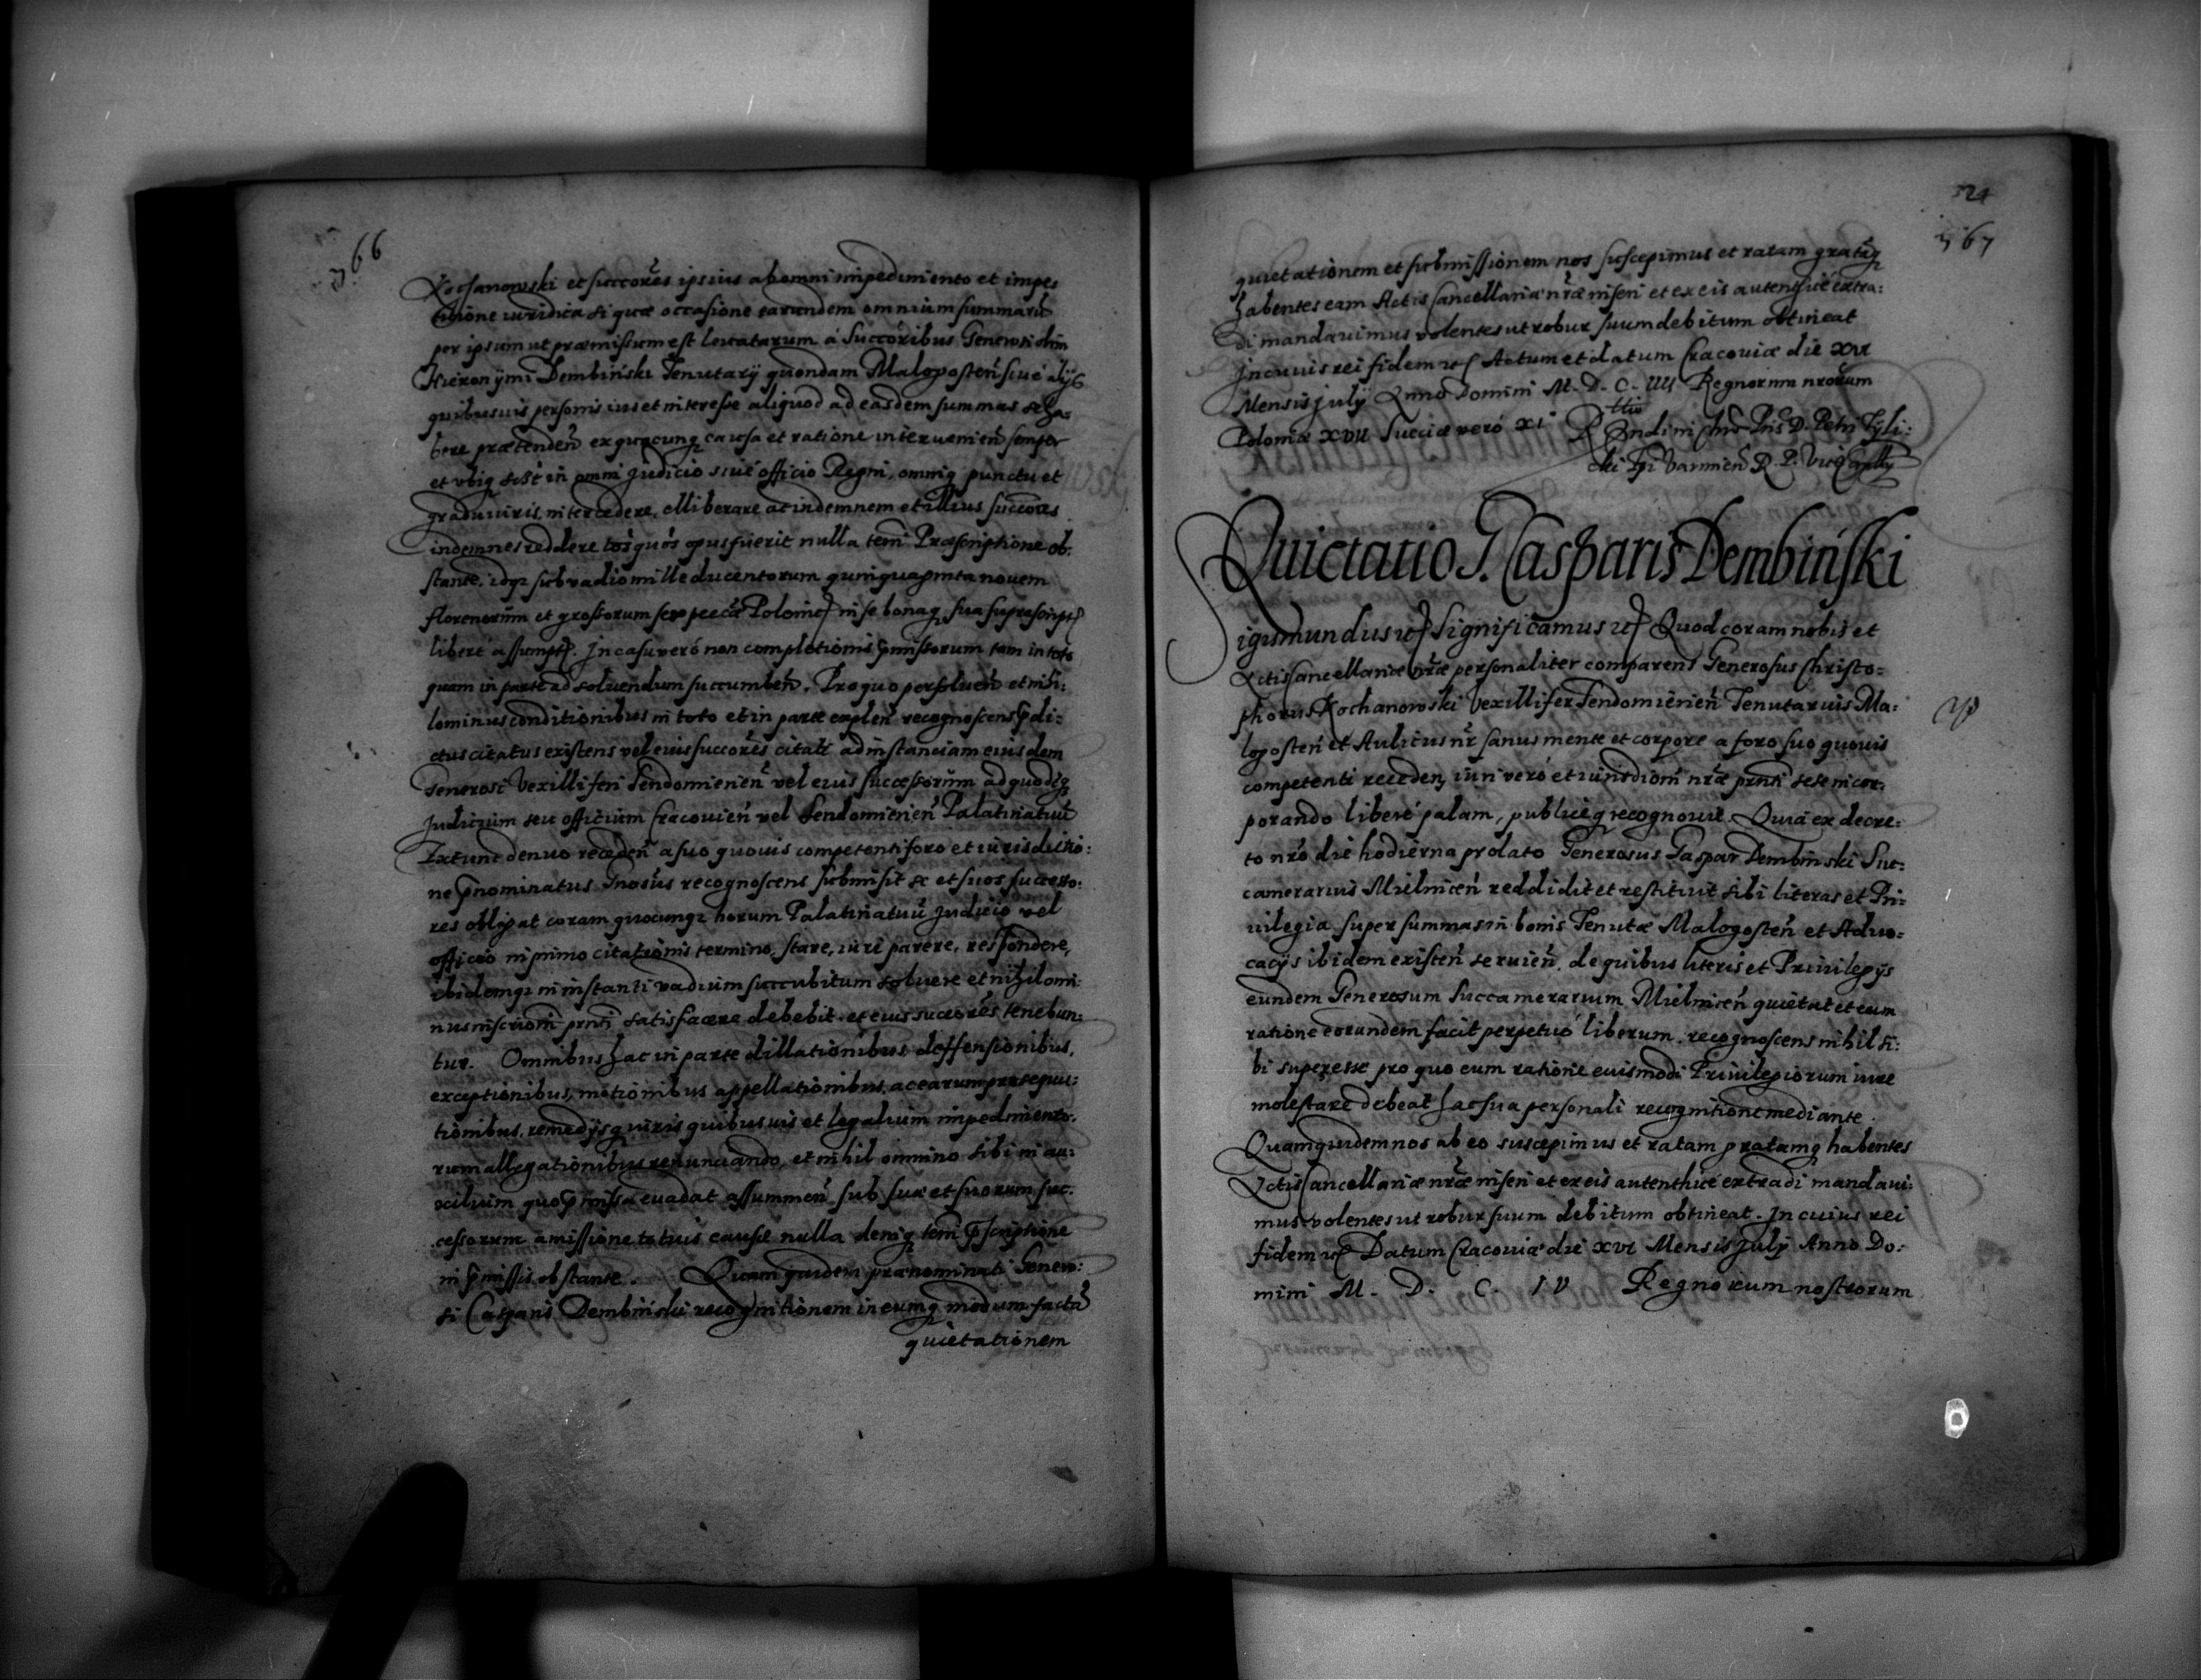 366
Kochanowski et succores ipsius ab omni impedimento et impe
titione iuridica si quae occasione earundem omnium summarū
per ipsum ut praemissum est levatarum á Succoribus Generosi olim
Hieronÿmi Dembiński Tenutarÿ quondam Malogosteń siué alÿs
quibusuis personis ius et interesse aliquod ad easdem summas se ha-
bere praetendeń ex quacunq causa et ratione interuenień semper
et vbiq sese in omni Judicio siué officio Regni, omniq punctu et
gradu iuris, intercedere, elliberare ac indemnem et illius succores
indemnes reddere toties quoties opus fuerit nulla terrń Praescriptione ob:
stante, idqz sub vadio mille ducentorum quinquaginta nouem
florenorum et grossorum sex pecćae Polonicae in se bonaq sua suprascripta
liberé assumptę. In casu veró non completionis p̄missorum tam in toto
quam in parte ad soluendum succumbeń. Pro quo persolueń et nihi:
lominus conditionibus in toto et in parte expleń recognoscens p̄di:
ctus citatus existens vel eius succores citati ad instanciam eiusdem
Generosi Vexilliferi Sendomirień vel eius successorum ad quodq
Judicium seu officium Cracouień vel Sendomirień Palatinatuū
Extunc denuo recedeń a suo quouis competenti foro et iurisdictio:
ne p̄nominatus Gnosus recognoscens submisit se et suos successo:
res obligat coram quocunqz horum Palatinatuū Judicio vel
officio in primo citationis termino, stare, iuri parere, respondere,
ibidemqz in instanti vadium succubitum soluere et nihilomi:
nus inscrioni prnti satisfacere debebit. et eius succores tenebun:
tur. Omnibus hac in parte dillationibus deffensionibus,
exceptionibus, motionibus appellationibus, ac earum prosequu:
tionibus, remedÿsq iuris quibusuis et legalium impedimento:
rum allegationibus renunciando, et nihil omnino sibi in au:
xilium quo p̄missa euadat assummeń sub suae et suorum suc:
cessorum amissione totius causae nulla deniq terrń p̄scriptione
in p̄missis obstante. Quam quidem praenominati Genero:
si Casparis Dembiński recognitionem in eumq modum factā
quietationem
324
367
quietationem et submissionem nos suscepimus et ratam gratāq
habentes eam Actis Cancellariae nrae inseri et ex eis autenticé extra:
di mandauimus volentes ut robur suum debitum obtineat
In cuius rei fidem etc Actum et datum Cracouiae die XVI
Mensis Julÿ Anno Domini M. D. C. IIII Regnorum nrorum
Poloniae XVII Sueciae veró XI Rltio Rndi in Chro Pris D. Petri Tÿli:
cki Epi Varmień R. P. Vicecancllÿ
Quietatio G. Casparis Dembiński
Sigismundus etc Significamus etc Quod coram nobis et
Actis Cancellariae nrae personaliter comparens Generosus Christo-
phorus Kochanowski Vexillifer Sendomirień Tenutarius Ma:
logosteń et Aulicus nr sanus mente et corpore a foro suo quouis
competenti receden, iuri veró et iurisdioni nrae prnti sese incor:
porando liberé palam, publiceq recognouit. Quia ex decre:
to nro die hodierna prolato Generosus Gaspar Dembinski Suc:
camerarius Mielniceń reddidit et restituit sibi literas et Pri:
uilegia super summas in bonis Tenutae Malogosteń et Aduo:
cacÿs ibidem existeń seruień, de quibus literis et Priuilegÿs
eundem Generosum Succamerarium Mielniceń quietat et eum
ratione eorundem facit perpetuó liberum. recognoscens nihil si:
bi superesse pro quo eum ratione euismodi Priuilegiorum iure
molestare debeat hac sua personali recognitione mediante.
Quamquidem nos ab eo suscepimus et ratam gratamq habentes
Actis Cancellariae nrae inseri et ex eis autenthicé extradi mandaui:
mus volentes ut robur suum debitum obtineat. In cuius rei
fidem etc Datum Cracouiae die XVI Mensis Julÿ Anno Do:
mini M. D. C. IV Regnorum nostrorum